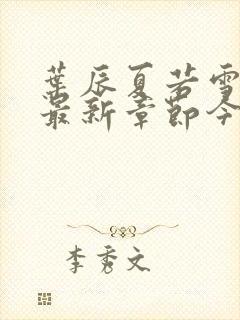 葉辰夏若雪
最新章節今
李秀文